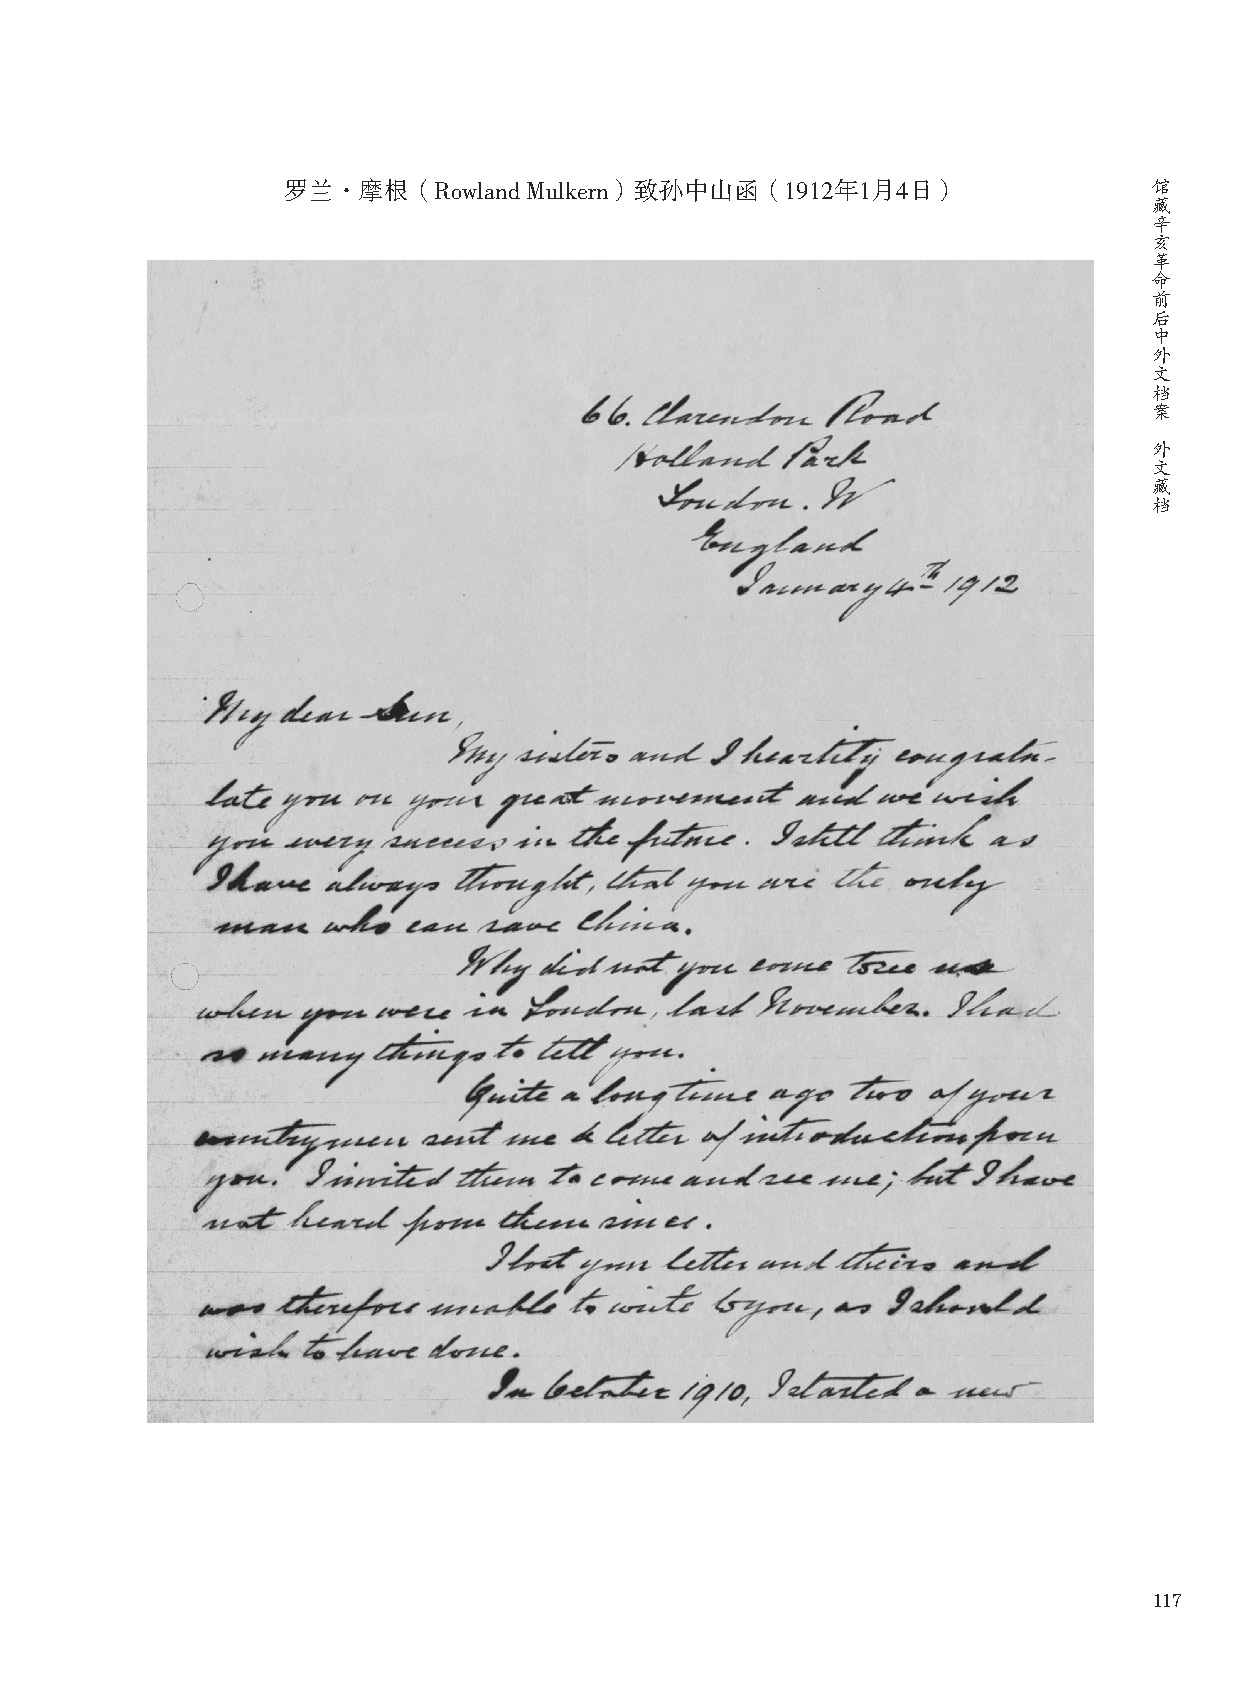 罗兰·摩根（Rowland Mulkern）致孙中山函（1912年1月4日）
馆藏辛亥革命前后中外文档案 外文藏档
66. Clarendon Road
Holland Park
London. W
England
January 4th 1912
My dear Sun,
My sisters and I heartily congratu-
late you on your great movement and we wish
you every success in the future. I still think as
I have always thought, that you are the only
man who can save China.
Why did not you come to see us
when you were in London, last November. I had
so many things to tell you.
Quite a long time ago two of your
countrymen sent me a letter of introduction from
you. I invited them to come and see me; but I have
not heard from them since.
I lost your letter and theirs and
was therefore unable to write to you, as I should
wish to have done.
In October 1910, I started a new
117